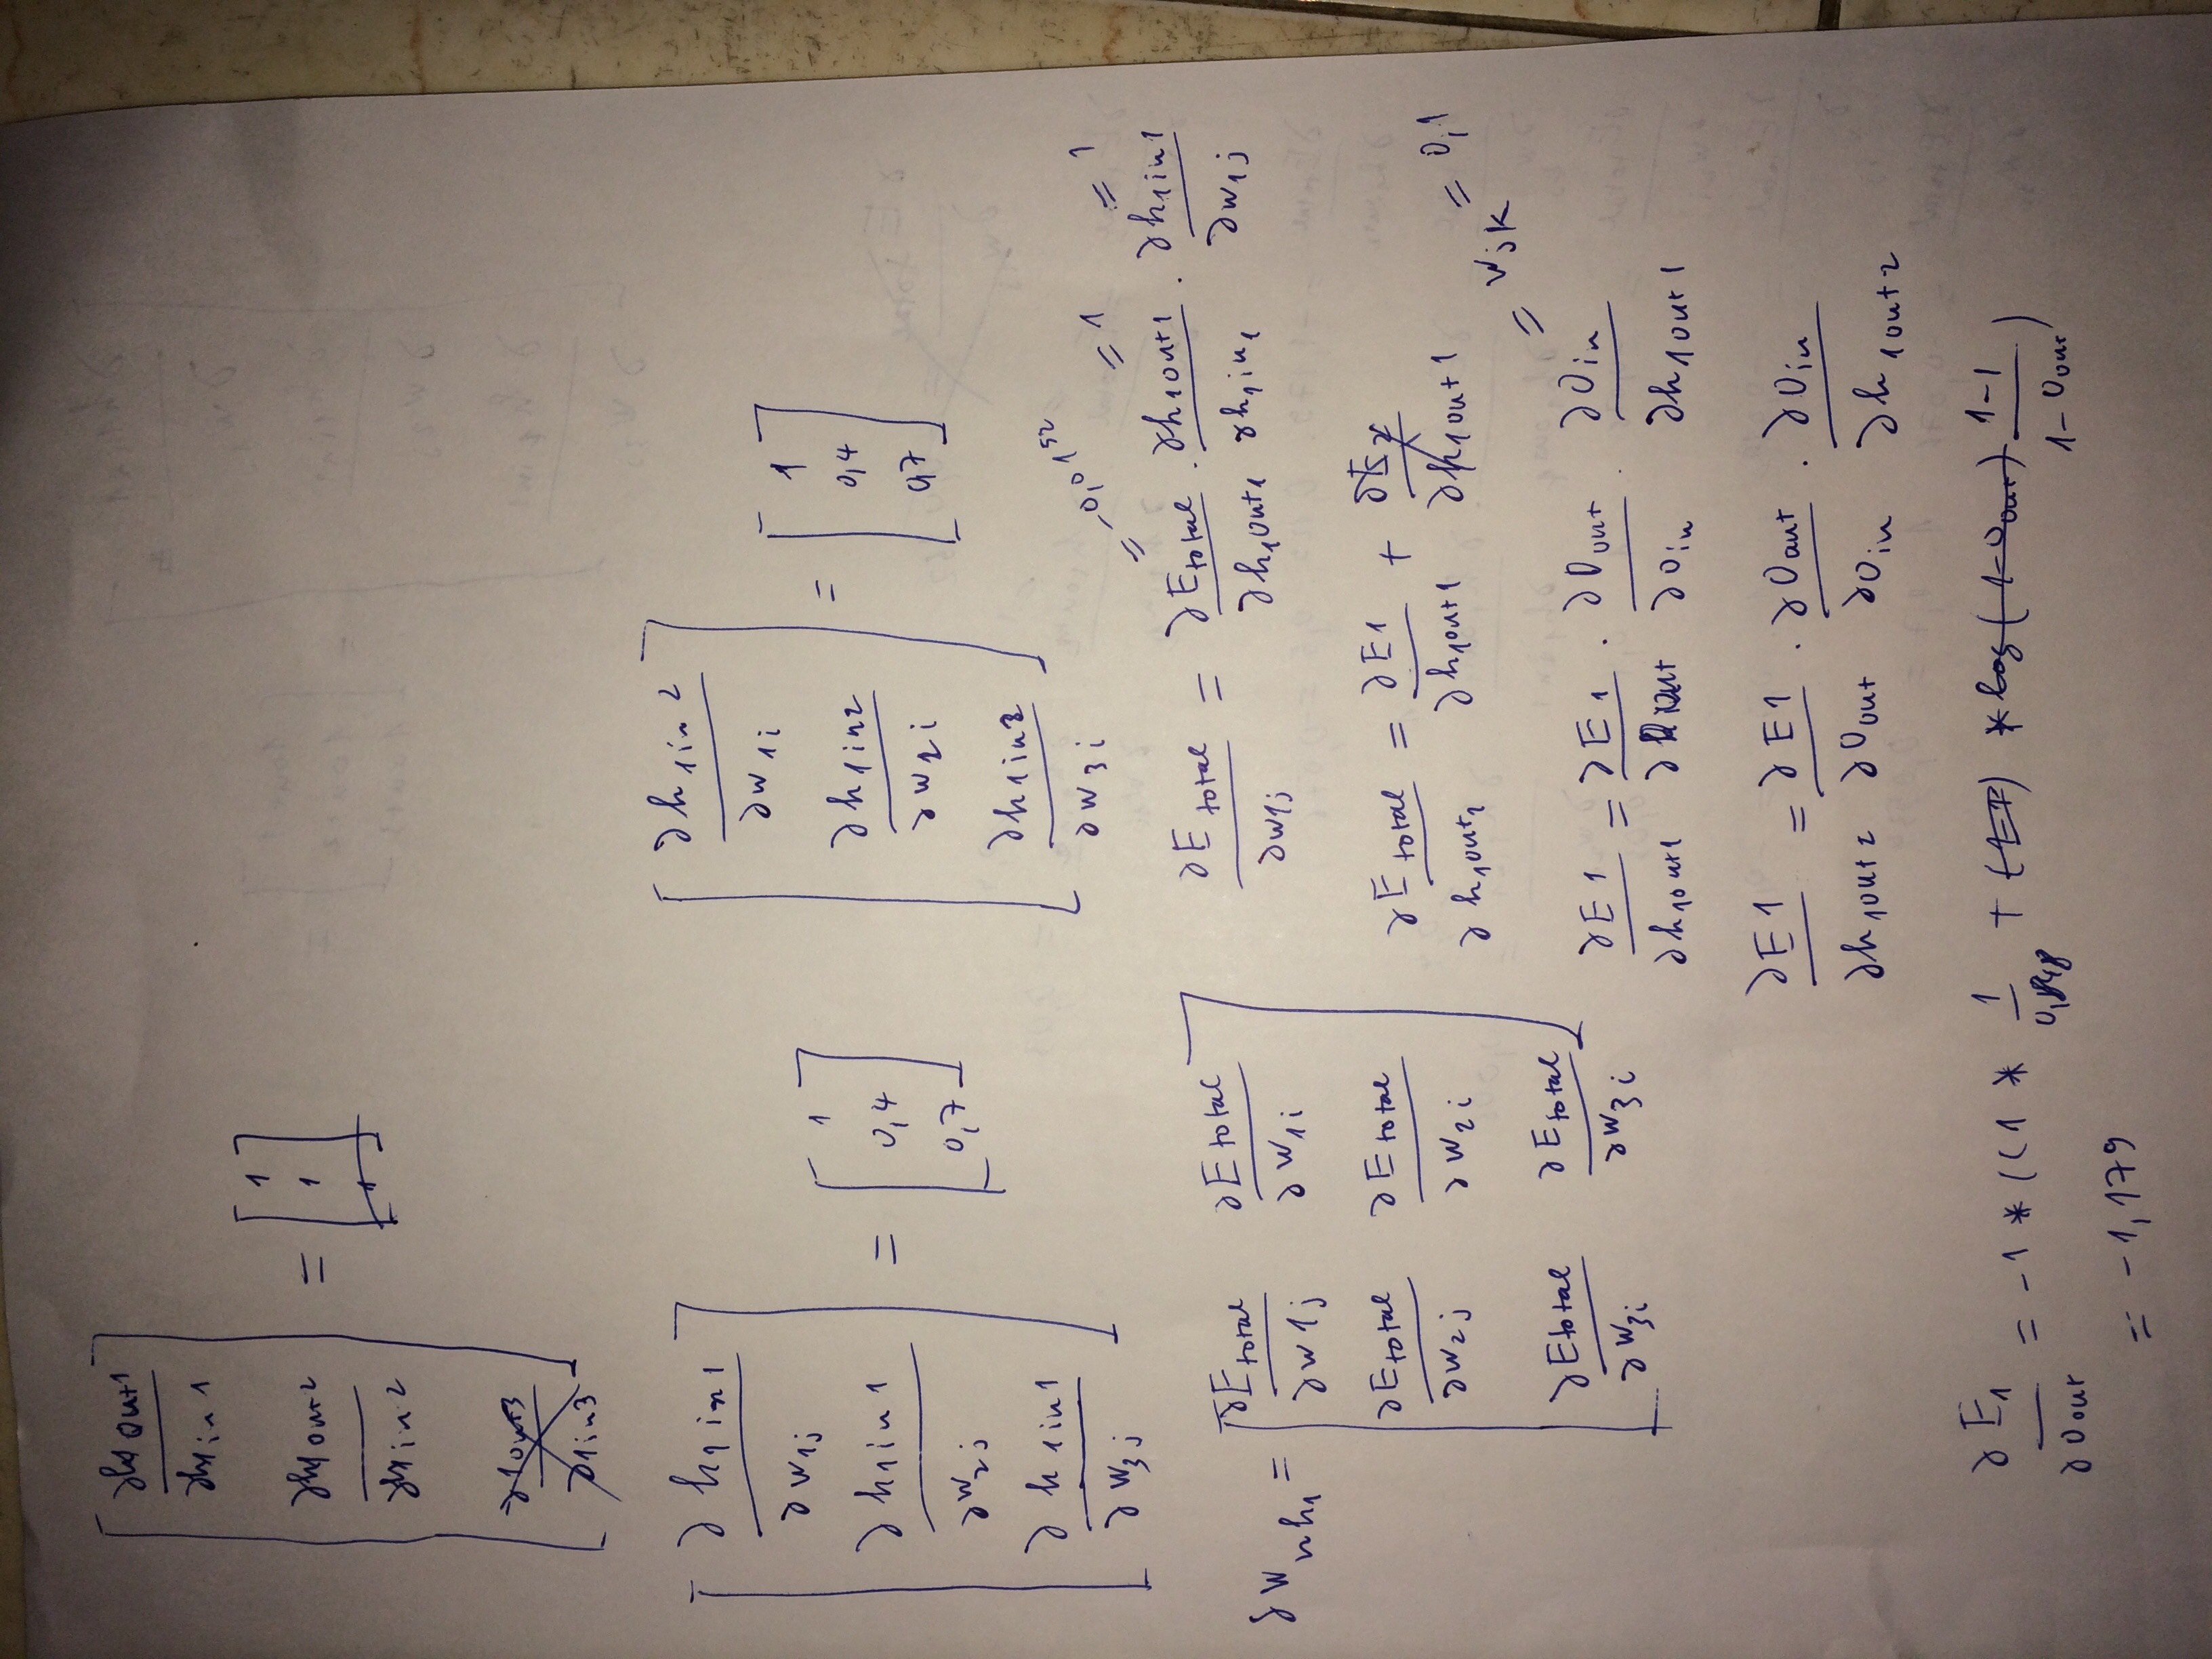 ∂h1out1 / ∂h1in1
∂h1out2 / ∂h1in2
∂1out3 / ∂1in3
= [ 1
1
1 ]
∂h1in1 / ∂w1j
∂h1in1 / ∂w2j
∂h1in1 / ∂w3j
= [ 1
0,4
0,7 ]
∂h1in2 / ∂w1i
∂h1in2 / ∂w2i
∂h1in2 / ∂w3i
= [ 1
0,4
0,7 ]
δw nh1 = [ ∂Etotal / ∂w1j ∂Etotal / ∂w1i
∂Etotal / ∂w2j ∂Etotal / ∂w2i
∂Etotal / ∂w3i ∂Etotal / ∂w3i ]
= -0,0152 = 1 = 1
∂Etotal / ∂w1j = ∂Etotal / ∂h1out1 . ∂h1out1 / ∂h1in1 . ∂h1in1 / ∂w1j
∂Etotal / ∂h1out1 = ∂E1 / ∂h1out1 + ∂E2 / ∂h1out1
= wjk = 0,1
∂E1 / ∂h1out1 = ∂E1 / ∂Oout . ∂Oout / ∂Oin . ∂Oin / ∂h1out1
∂E1 / ∂h1out2 = ∂E1 / ∂Oout . ∂Oout / ∂Oin . ∂Oin / ∂h1out2
∂E1 / ∂Oout = -1 * ((1 * 1 / 0,848 + * log(1-Oout) 1-1 / 1-Oout )
= -1,179